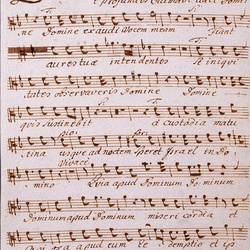 profundis clamavi ad te Domi
ne Domine exaudi vocem meam Fiant
aures tuae intendentes Si iniqui
tates observaveris Domine Domine
quis sustinebit a custodia matu
pia: for:
tina usque ad noctem speret Israel in Do
Vivace
mino Quia apud Dominum Dominum
Dominum apud Dominum misericordia et
apud eum redemptio et co